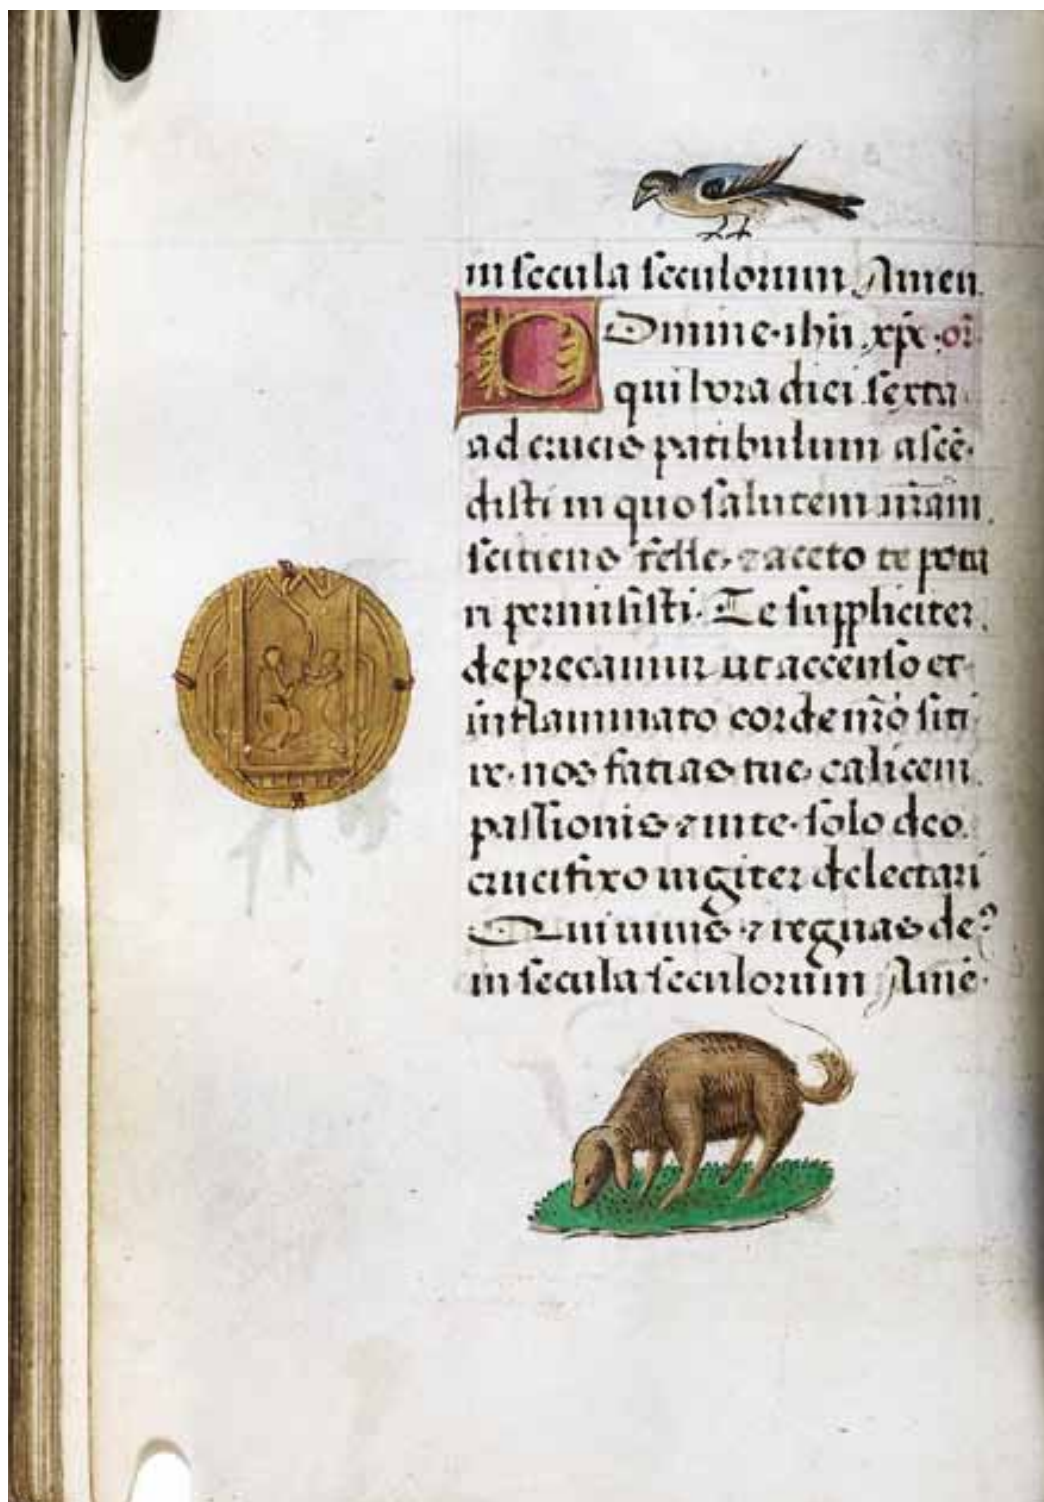 in secula seculorum Amen.
Domine·ihũ xp̃e·or̃·
qui hora diei sexta
ad crucis patibulum ascẽ·
disti in quo salutem nr̃am
scitiens felle, ⁊ aceto te pota
ri permisisti. Te suppliciter
deprecamur ut accenso et
inflammato corde nr̃o siti
re·nos facias tue, calicem
passionis ⁊ in te·solo deo.
crucifixo iugiter delectari
Qui viuis ⁊ regnas de?
in secula seculorum Amẽ·